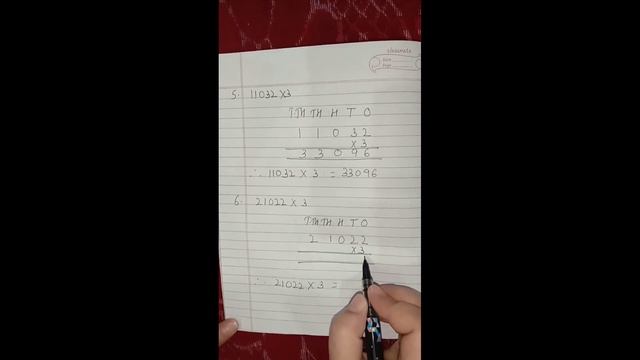 classmate
Date
Page
5. 11032 X3
T.TH TH H T O
1 1 0 3 2
X 3
3 3 0 9 6
∴ 11032 X 3 = 33096
6. 21022 X 3
T.TH TH H T O
2 1 0 2 2
X 3
∴ 21022 X 3 =